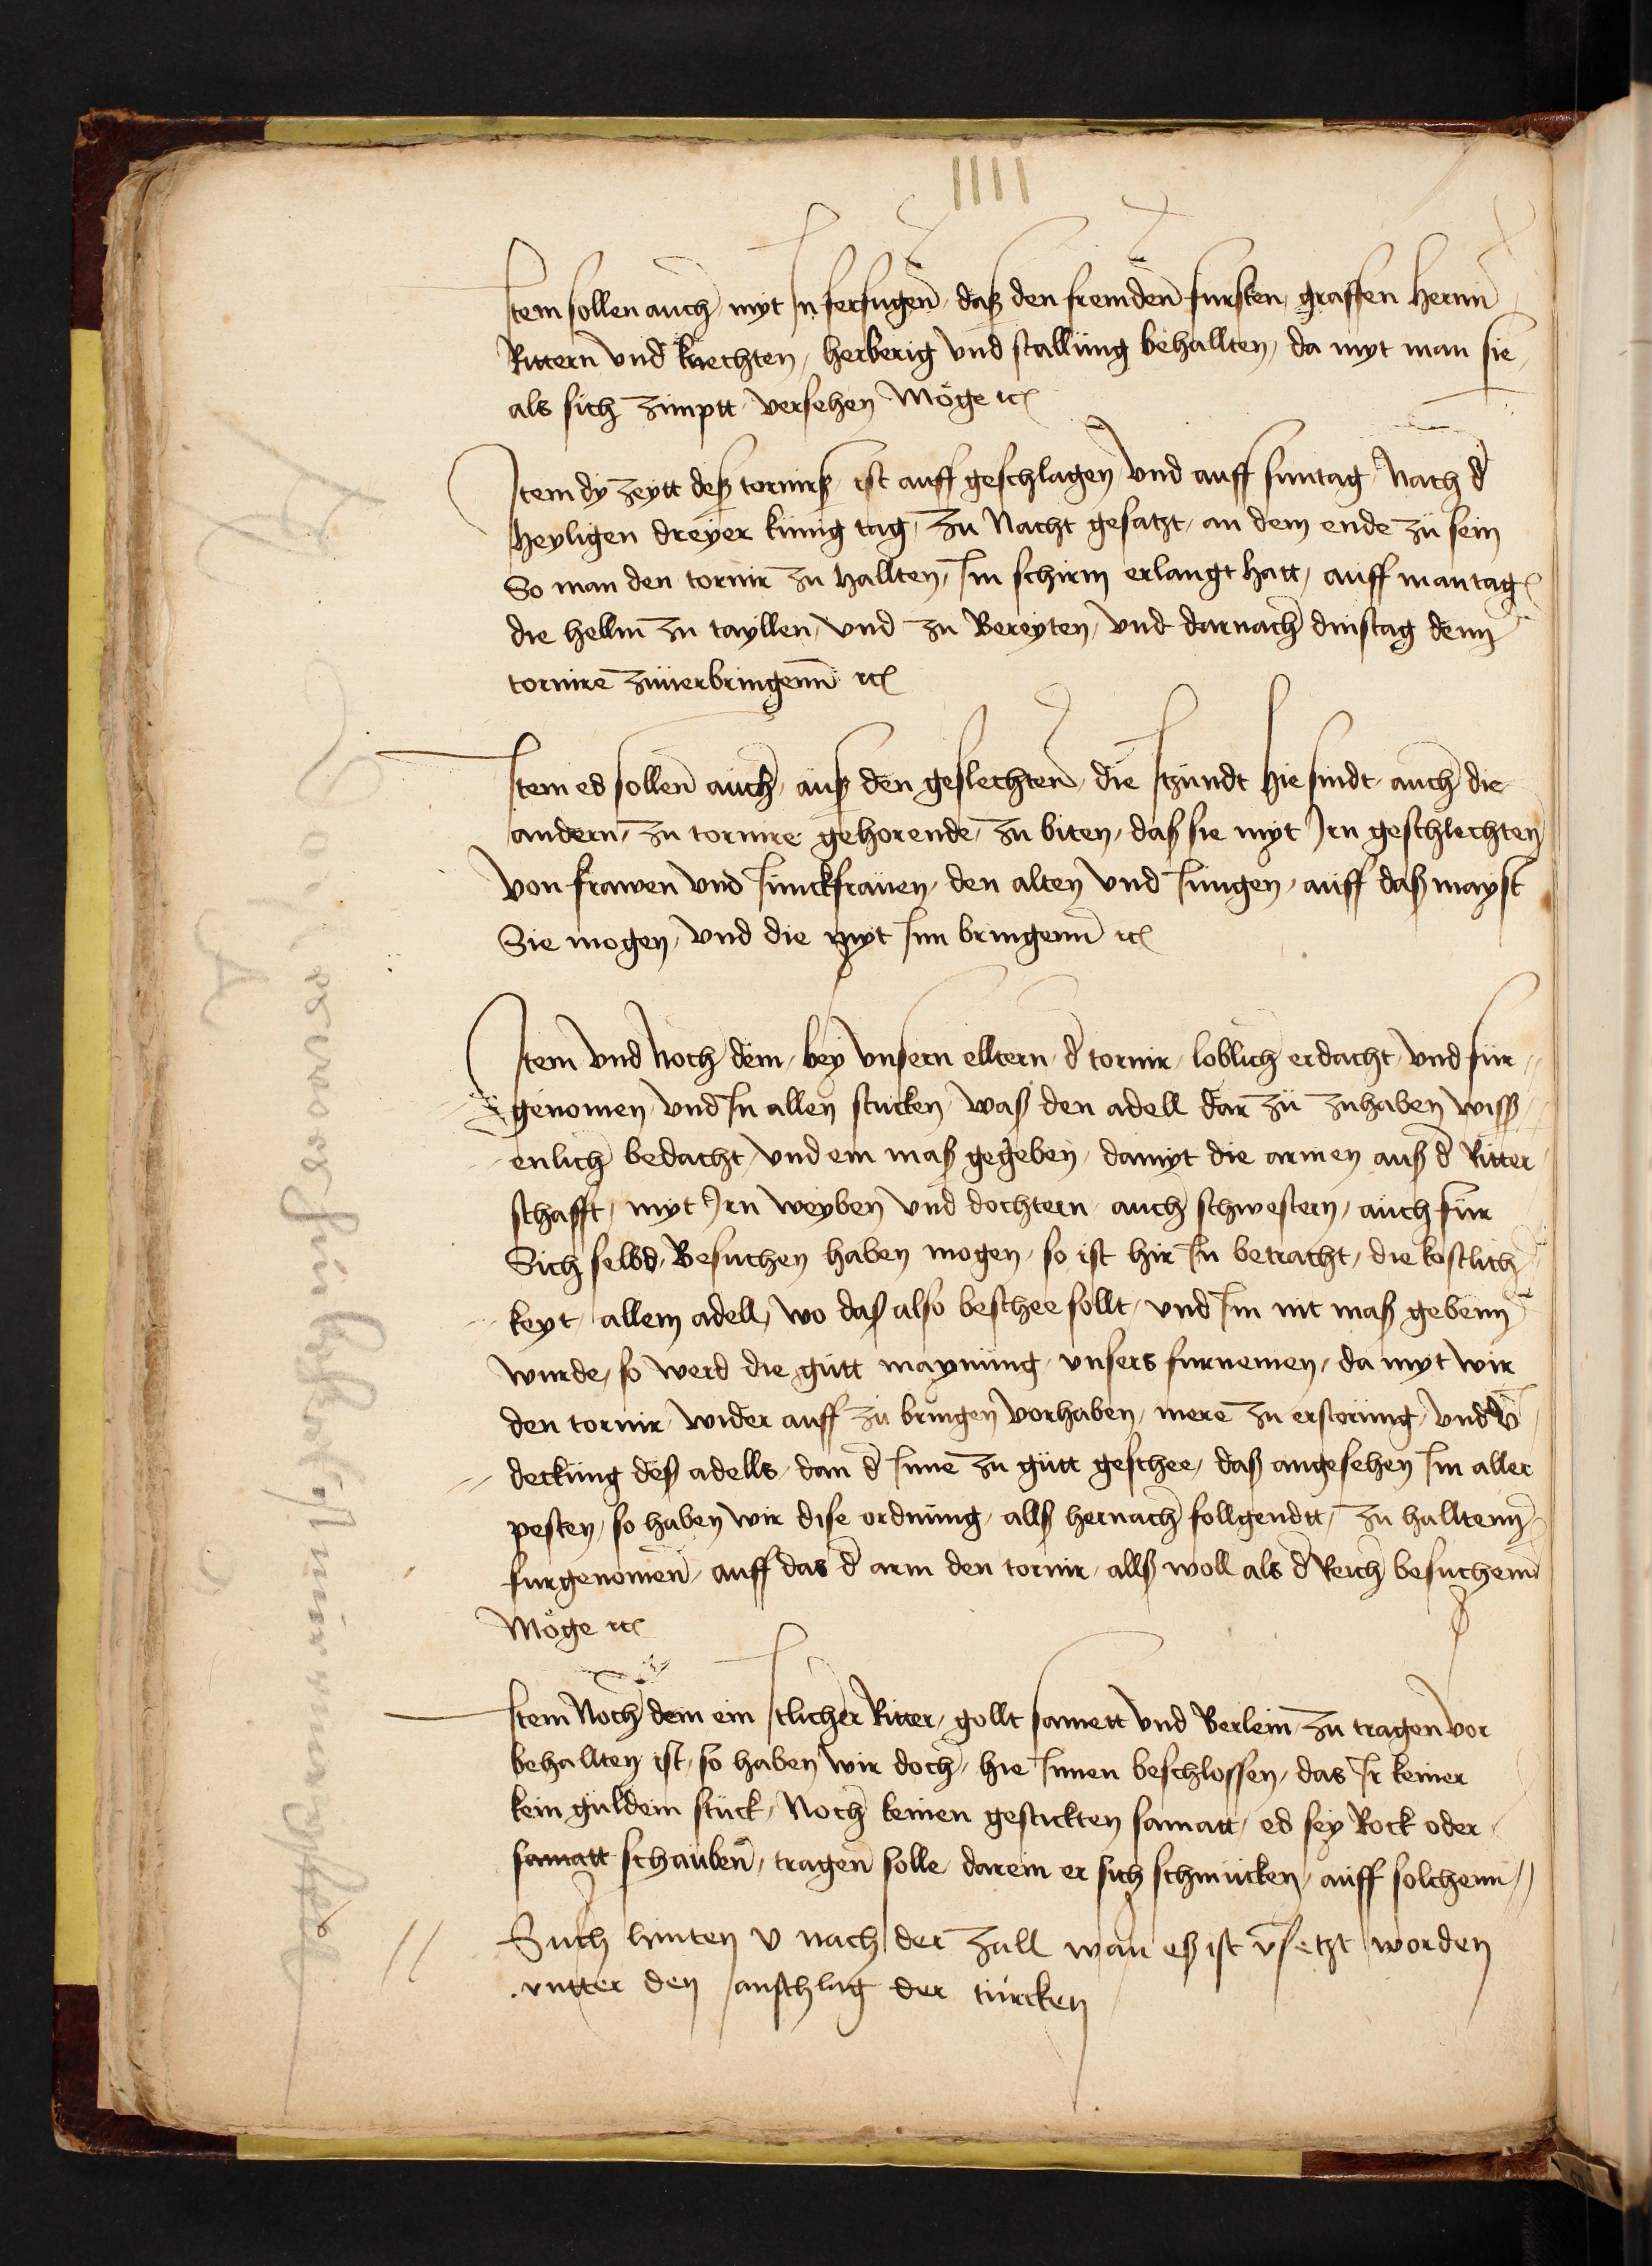 IIII
Item sollen auch myt In ferfugen das den fremden fursten graffen Hernn
Rittern vnd knechten, herberig vnd stallung behallten, da myt man sie,
als sich zimptt versehen Möge etc
Item dy zeytt deß tornirß ist auff geschlagen vnd auff suntag Nach d
Heyligen dreyer kunig tag, zu Nacht gesatzt, an dem ende zu sein
So man den tornir zu Hallten, Im schirm erlangt hatt, auff mantag
die hellm zu tayllen, vnd zu Bereyten, vnd darnach dinstag denn
tornire zuuerbringenn etc
Item es sollen auch, auß den geslechten, die Itzundt hie sindt, auch die
andern, zu tornire gehorende, zu biten, daß sie myt Irn geschlechten
von frawen vnd Iunckfrauen, den alten vnd Iungen, auff daß mayst
Sie mogen, vnd die myt Inn bringenn etc
Item vnd Noch dem, bey vnsern elltern, d tornir, loblich erdacht, vnd fur
genomen, vnd In allen stucken, waß den adell dar zu zuhaben wiss
enlich bedacht, vnd ein maß gegeben, damyt die armen auß d Ritter
schafft, myt Irn weyben vnd dochtern, auch schwestern, auch fur
Sich selbs, Besuchen haben mogen, so ist hir In betracht, die kostlich
keyt, allem adell, wo daß also beschee sollt, vnd Im nit maß gebenn
wurde, so werd die gutt maynung, vnsers furnemen, da myt wir
den tornir, wider auff zu bringen vorhaben, mere zu erstorung, vnd v
deckung deß adells, dan d Inne zu gutt geschee, daß angesehen Im aller
pesten, so haben wir dise ordnung, allß hernach follgendtt, zu halltenn
furgenomen, auff das d arm den tornir, allß woll als d Reich besuchenn
Möge etc
Item Noch dem ein Itlicher Ritter, gollt samett vnd Berlein, zu tragen vor
behallten ist, so haben wir doch, hie Innen beschlossen, das Ir keiner
kein guldein stuck, Noch keinen gestickten samatt, es sey Rock oder
samatt schauben, tragen solle, darein er sich schmucken, auff solchenn
Such hinten v nach der zall wan eß ist vsetzt worden
vntter den anschlag der turcken